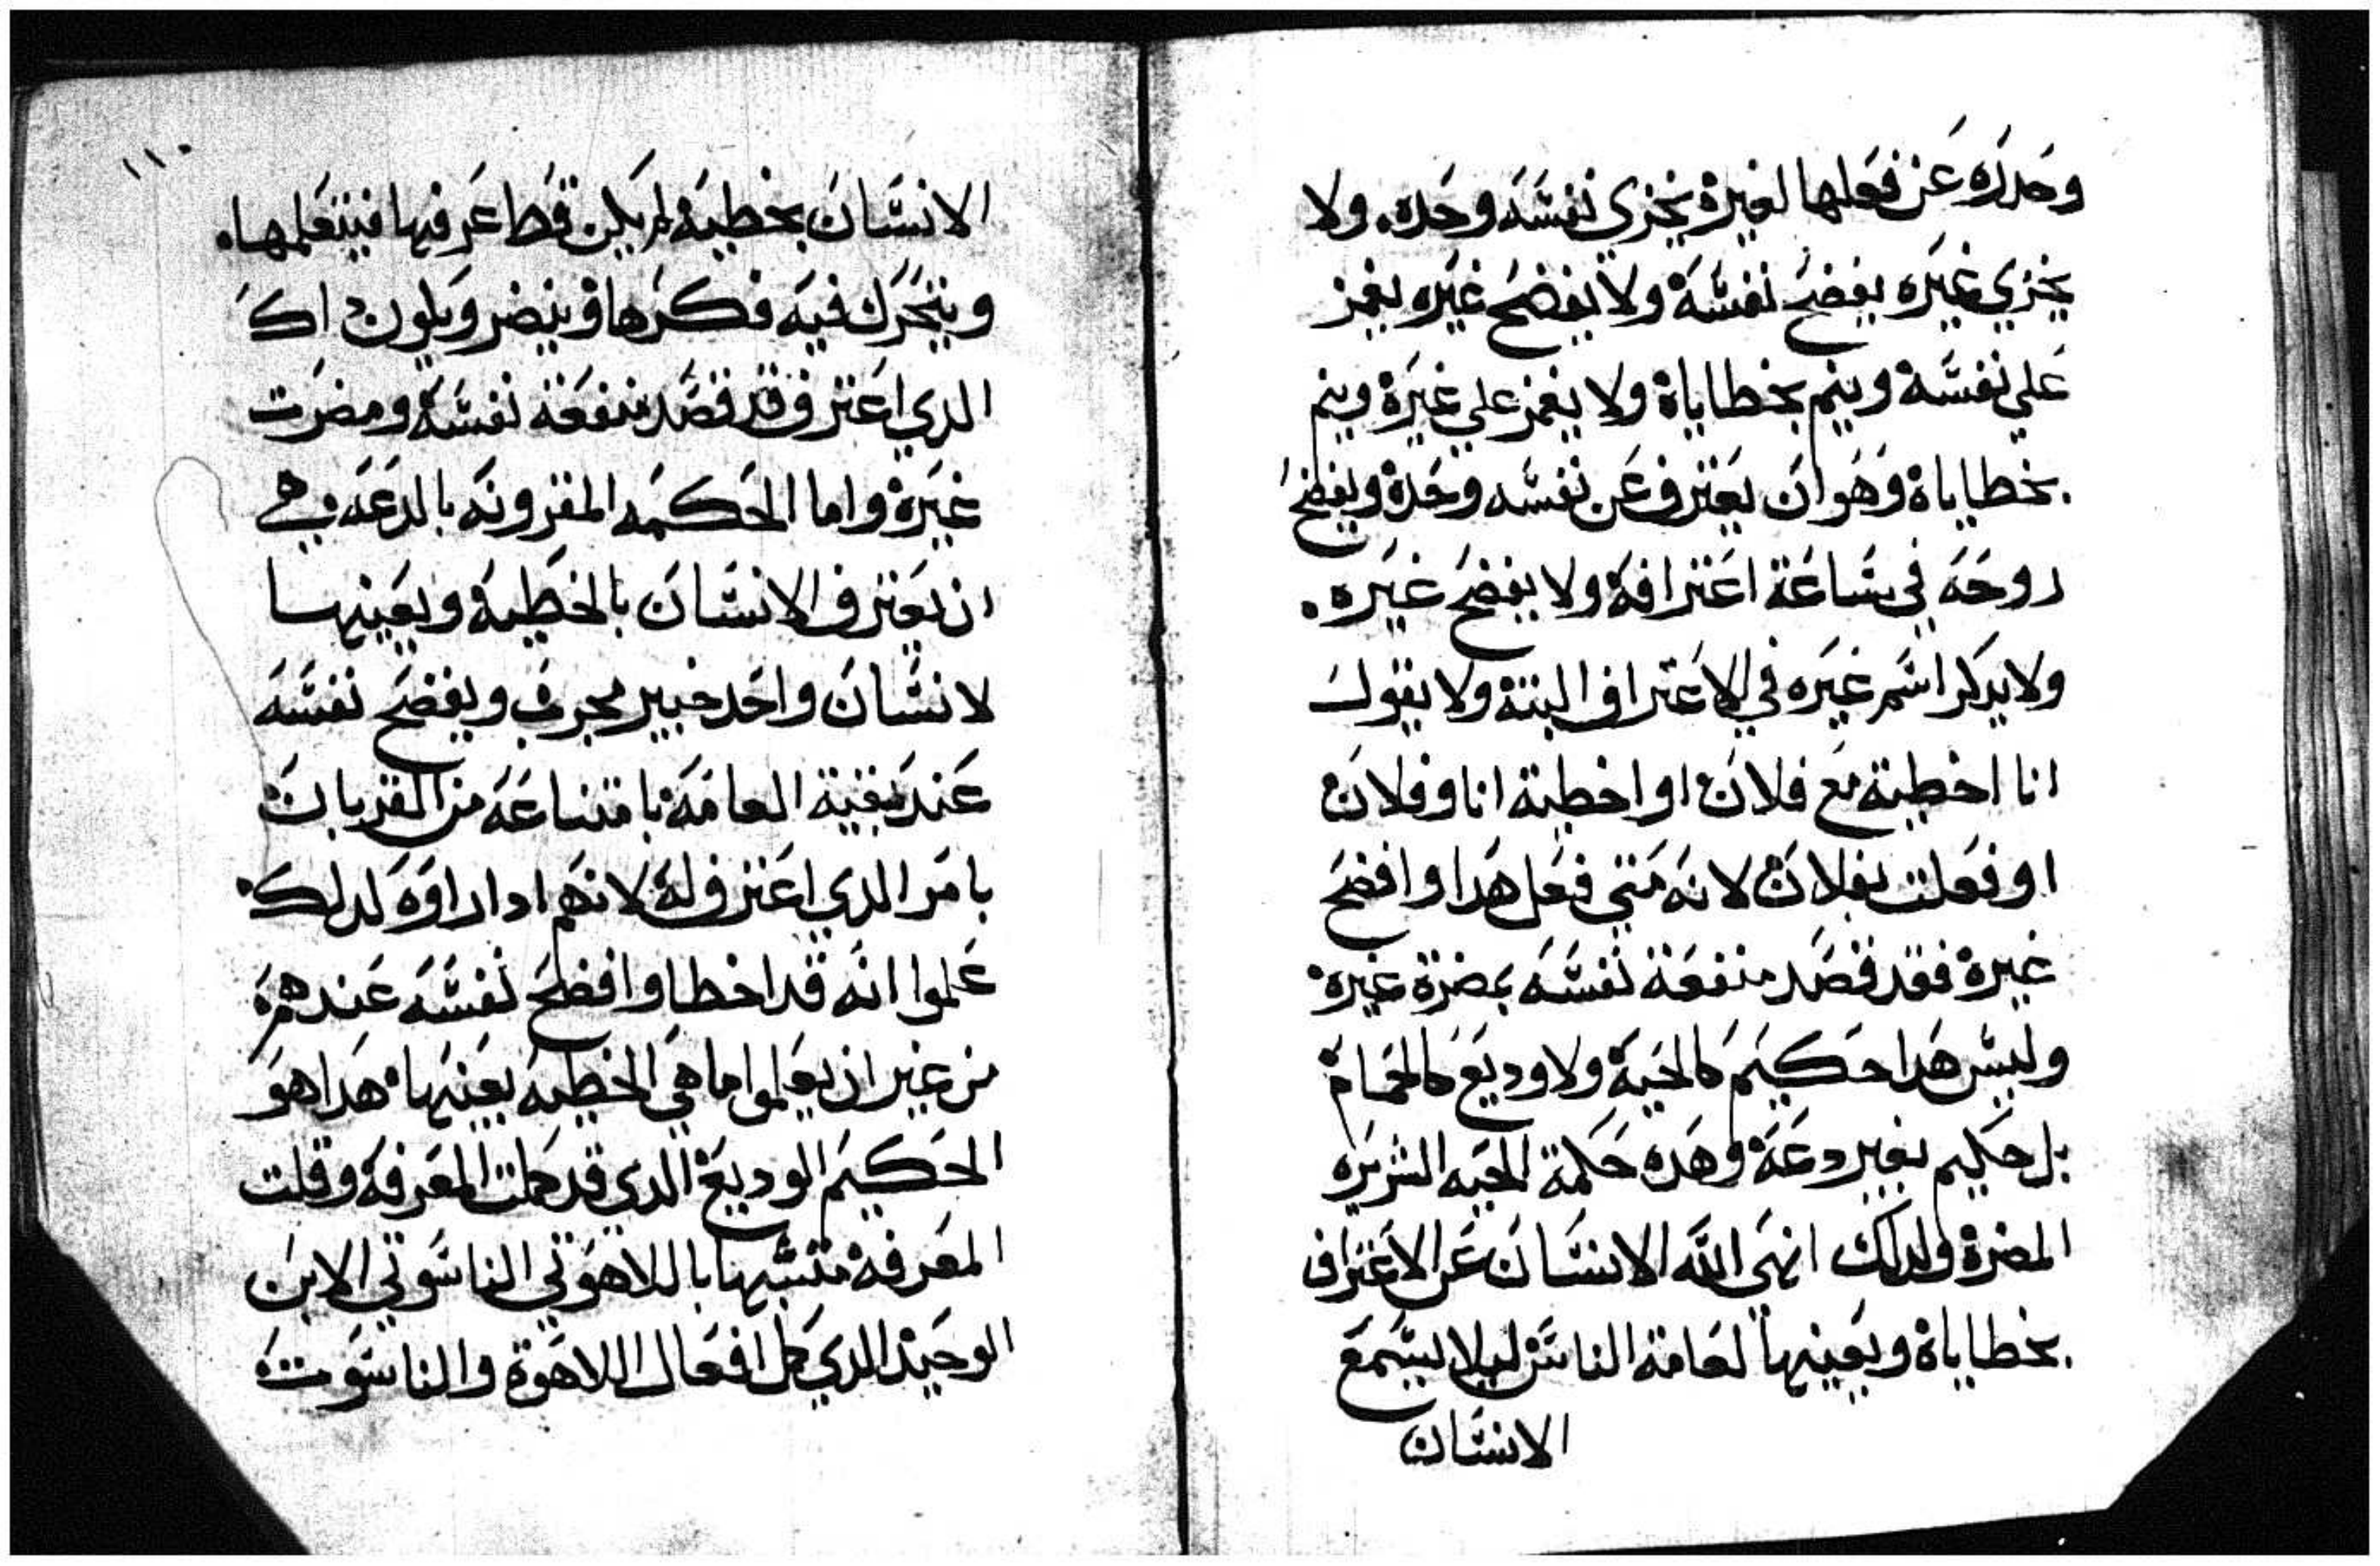 وحدره عن فعلها لغيرة يخزي نفسه وحده. ولا
يخزي غيره يفضح نفسة ولا يفضح غيره يغمز
علي نفسة وينم بخطاياة ولا يغمز علي غيرة وينم
بخطاياة وهو ان يعترف عن نفسه وحدة ويفضح
روحه في ساعة اعترافة ولا يفضح غيره.
ولا يدكر اسم غيره في الاعتراف البتة ولا يقول
انا اخطية مع فلان او اخطية انا وفلان
او فعلت بفلان لانه متي فعل هدا وافضح
غيرة فقد قصد منفعة نفسه بمضرة غيرة
وليس هدا حكيم كالحية ولا وديع كالحمامة
بل حكيم بغير دعة وهده حكمة الحيه الشريره
المضرة ولدلك انهي الله الانسان عن الاعتراف
بخطاياة ويعينها لعامة الناس ليلا يسمع
الانسان
١١٠
الانسان بخطية لم يكن قط عرفها فيتعلمها.
ويتحرك فيه فكرها وينضر ويكون اك
الدي اعترف قد قصد منفعة نفسة ومضرت
غيرة واما الحكمه المقرونه بالدعه وهي
ان يعترف الانسان بالخطية ويعينها
لانسان واحد خبير مجرب ويفضح نفسه
عند بقية العامة بامتناعه من القربان
بامر الدي اعترف له لانهم ادا راوه لدلك
علموا انه قد اخطا وافضح نفسه عندهم
من غير ان يعلموا ما هي الخطيه بعينها هدا هو
الحكيم الوديع الدي قد كملت المعرفة وقلت
المعرفة متشبها باللاهوتي الناسوتي الابن
الوحيد الدي كمل افعال اللاهوة والناسوت